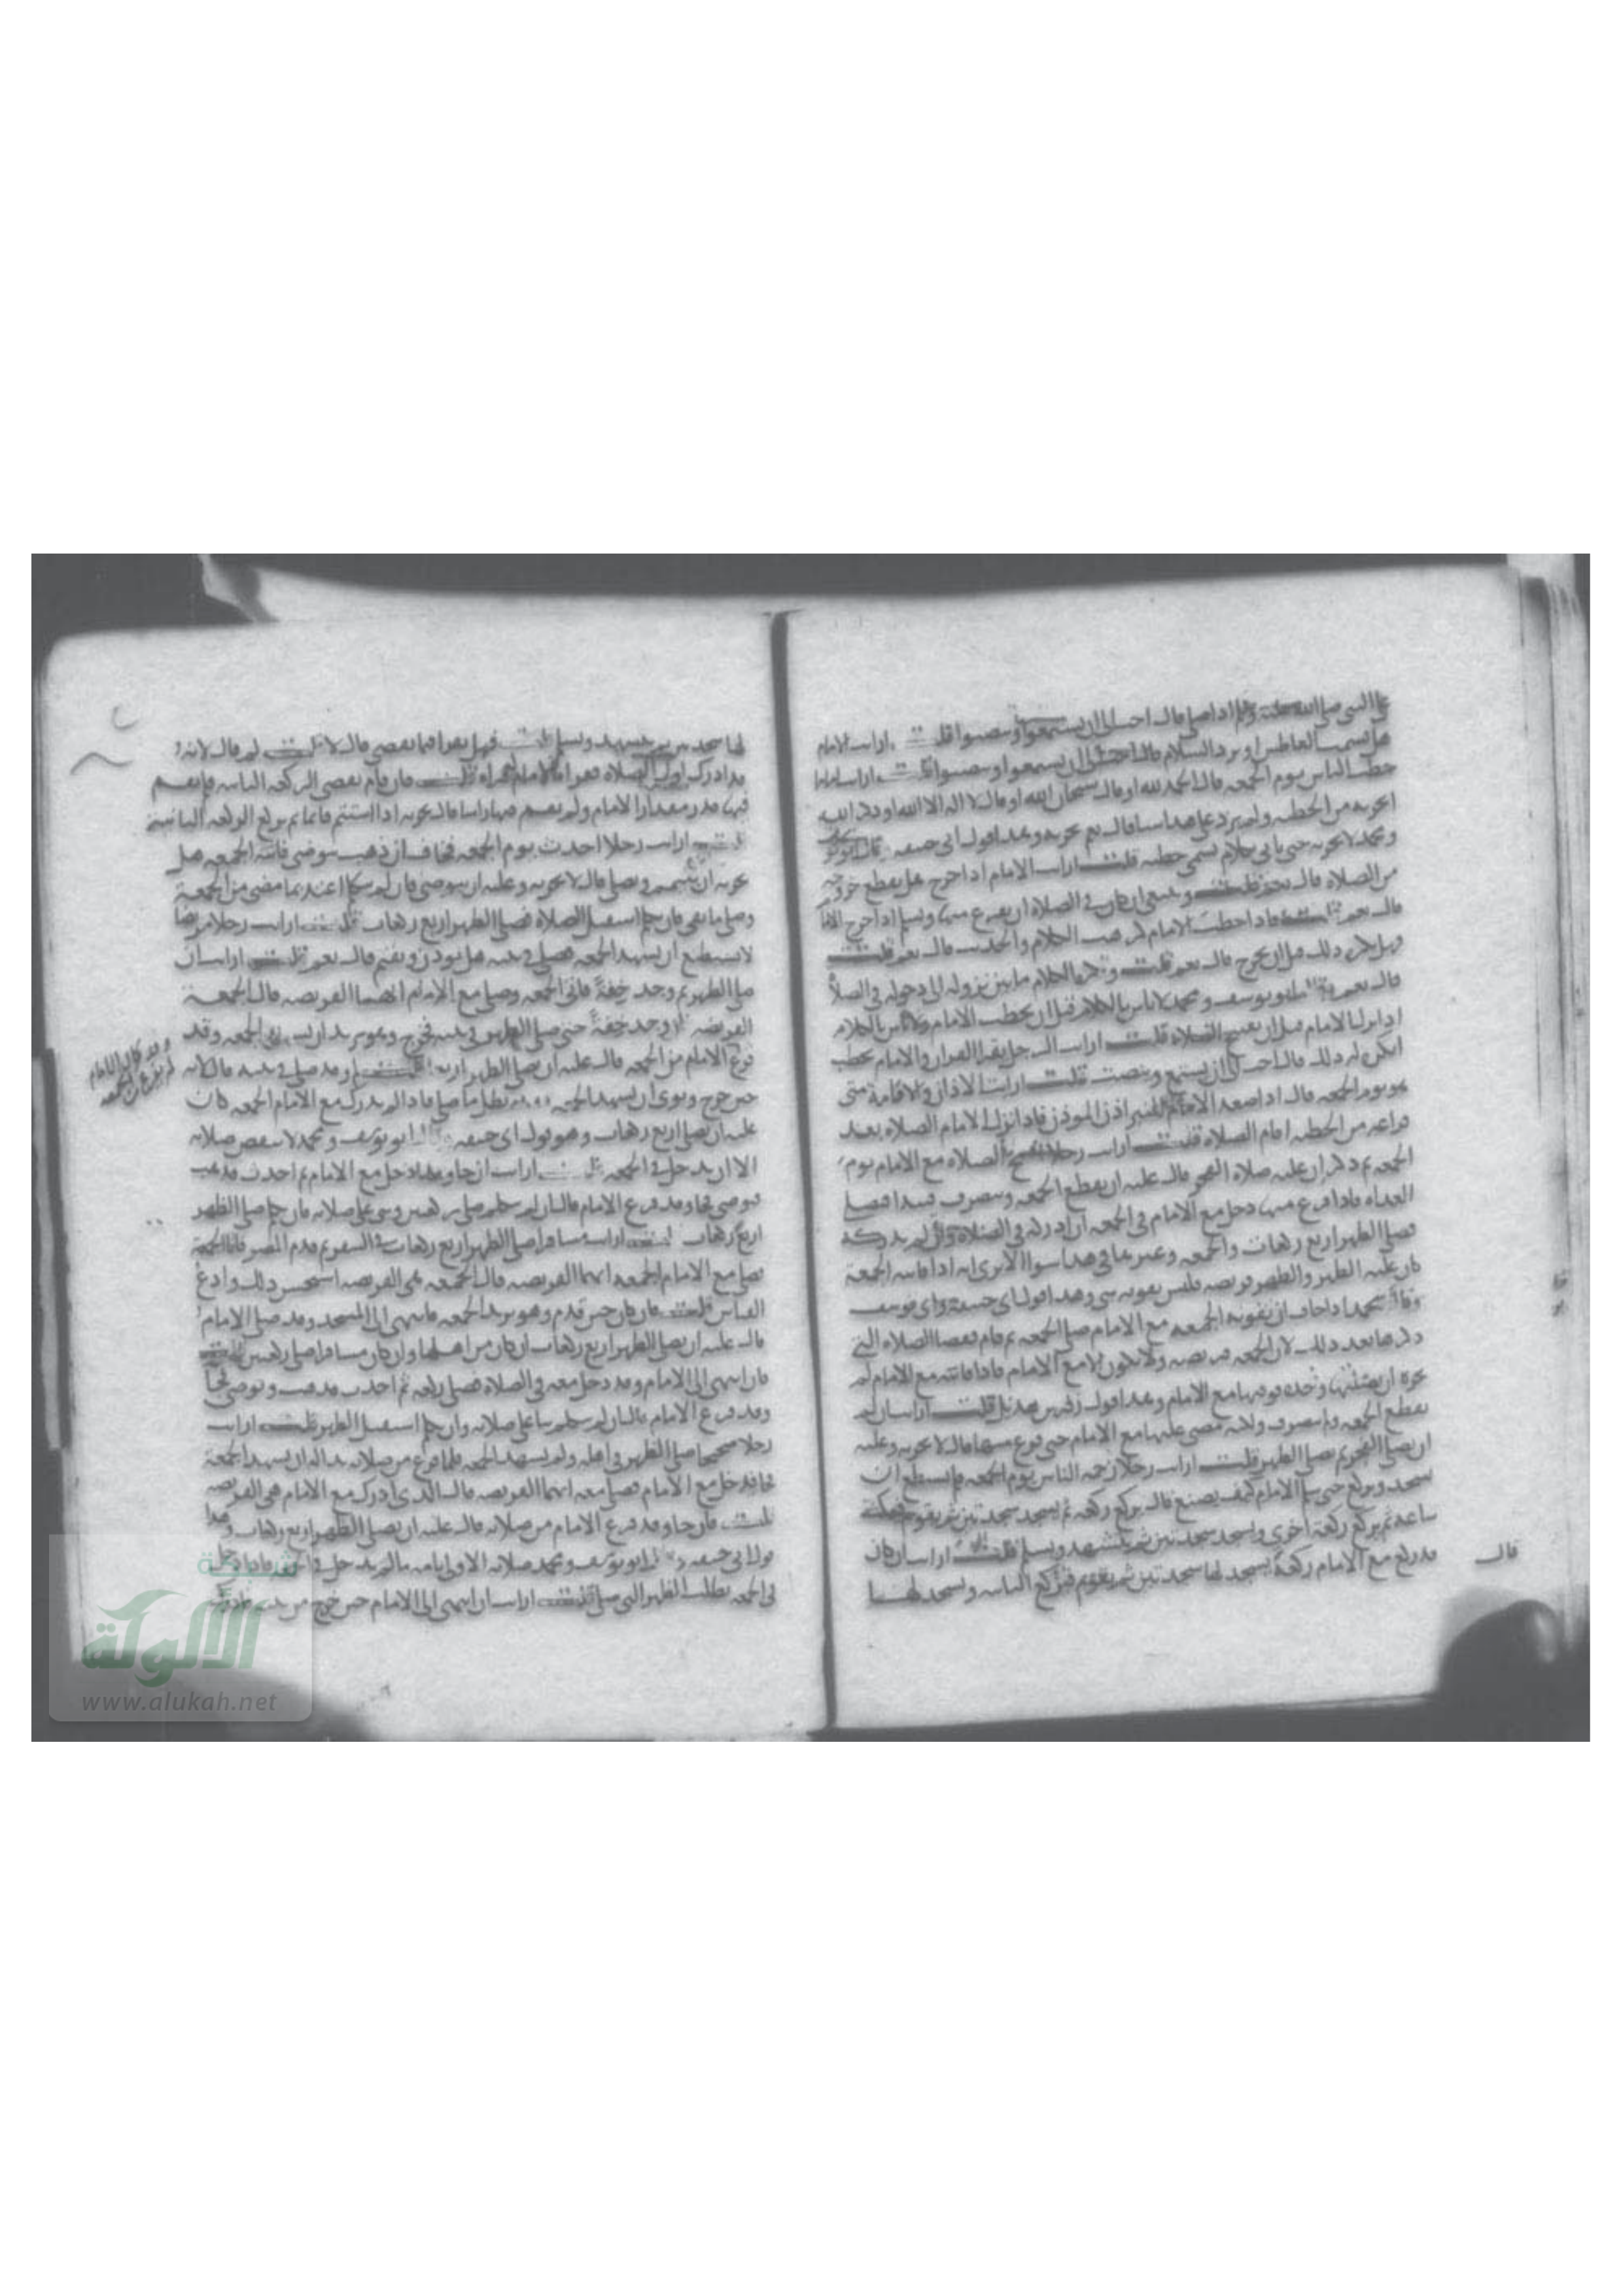 على النبي صلى الله عليه وسلم اذا صلى قال احب الى ان يستمعوا وينصتوا قلت ارايت الامام
هل يشمت العاطس او يرد السلام قال احب الى ان يستمعوا وينصتوا قلت ارايت اماما
خطب الناس يوم الجمعه فقال الحمد لله او قال سبحان الله او قال لا اله الا الله او ذكر الله
ايجزيه من الخطبه ولم يزد على هذا شيا قال نعم يجزيه وهذا قول ابي حنيفه وقال ابو يوسف
ومحمد لا يجزيه حتى ياتي بكلام يسمى خطبه قلت ارايت الامام اذا خرج هل يقطع خروجه
من الصلاه قال نعم قلت وينبغي ان كان في الصلاه ان يفرغ منها ويسلم اذا خرج الامام
قال نعم قلت فاذا خطب الامام كرهت الكلام والحديث قال نعم قلت
وهل تكره ذلك قبل ان يخرج قال نعم قلت وتكره الكلام ما بين نزوله الى دخوله في الصلاه
قال نعم وقال ابو يوسف ومحمد لا باس بالكلام قبل ان يخطب الامام ولا باس بالكلام
اذا نزل الامام قبل ان يفتتح الصلاه قلت ارايت الرجل يقرا القران والامام يخطب
اتكره له ذلك قال احب الى ان يستمع وينصت قلت ارايت الاذان والاقامة متى
هو يوم الجمعه قال اذا صعد الامام المنبر اذن الموذن فاذا نزل الامام الصلاه بعد
فراغه من الخطبه اقام الصلاه قلت ارايت رجلا افتتح الصلاه مع الامام يوم
الجمعه ثم ذكر ان عليه صلاه الفجر قال عليه ان يقطع الجمعه وينصرف فيبدا فيصلي
الغداه فاذا فرغ منها دخل مع الامام في الجمعه ان ادركه في الصلاه وان لم يدركه
فصلى الظهر اربع ركعات والجمعه وغيرها في هذا سوا الا ترى انه اذا فاتته الجمعة
كان عليه الظهر والظهر فريضه فليس يفوته شي وهذا قول ابي حنيفة وابي يوسف
وقال محمد اذا خاف ان تفوته الجمعه مع الامام صلى الجمعه ثم قام فقضا الصلاه التي
ذكرها بعد ذلك لان الجمعه فريضه ولا تكون الا مع الامام فاذا فاتته مع الامام لم
يجزه ان يصليها وحده مع الامام وهذا قول زفر بن هذيل قلت ارايت ان لم
يقطع الجمعه ولم ينصرف ولكنه مضى عليها مع الامام حتى فرغ منها قال لا يجزيه وعليه
ان يصلي الفجر ثم يصلي الظهر قلت ارايت رجلا زحمه الناس يوم الجمعه فلم يستطع ان
يسجد ويركع حتى سلم الامام كيف يصنع قال يركع ركعه ثم يسجد سجدتين ثم يقوم فيمكث
ساعه ثم يركع ركعة اخرى ويسجد سجدتين ثم يتشهد ويسلم قلت ارايت ان كان
قد ركع مع الامام ركعة يسجد لها سجدتين ثم يقوم فيركع الثانيه ويسجد لها
قال
لها سجدتين ثم يتشهد ويسلم قلت فهل يقرا فيما يقضي قال لا قلت لم قال لانه
قد ادرك اول الصلاه فقراة الامام له قراه قلت فان قام يقضي الركعه الثانيه فلم يقم
فيها قدر مقدار الامام ولم يقم فيها راسا قال يجزيه اذا استتم قائما ثم يركع الركعه الثانية
قلت ارايت رجلا احدث يوم الجمعه فخاف ان ذهب يتوضى فاتته الجمعه هل
يجزيه ان يتيمم ويصلي قال لا يجزيه وعليه ان يتوضى فان لم يتكلم اعتد بما مضى من الجمعة
وصلى ما بقي فان تكلم استقبل الصلاه فصلى الظهر اربع ركعات قلت ارايت رجلا مريضا
لا يستطيع ان يشهد الجمعه فصلى في بيته هل يوذن ويقيم قال نعم قلت ارايت ان
صلى الظهر ثم وجد خفةً فاتى الجمعه وصلى مع الامام ايهما الفريضه قال الجمعة
الفريضه وجد خفةً حتى صلى الظهر في بيته فخرج وهو يريد ان يشهد الجمعه وقد
فرغ الامام من الجمعه قال عليه ان يصلي الظهر اربعا قلت لم وقد صلى في بيته قال لانه
حين خرج ونوى ان يشهد الجمعه بطل ما صلى فاذا لم يدرك مع الامام الجمعه كان
عليه ان يصلي اربع ركعات وهو قول ابي حنيفه وقال ابو يوسف ومحمد لا ينتقض صلاته
الا ان يدخل في الجمعه قلت ارايت ان جا وقد دخل مع الامام ثم احدث فذهب
فتوضى فجا وقد فرغ الامام قال ان لم يتكلم صلى ركعتين وبنى على صلاته فان تكلم صلى الظهر
اربع ركعات قلت ارايت مسافرا صلى الظهر اربع ركعات في السفر ثم قدم المصر فاتا الجمعة
فصلى مع الامام الجمعه ايهما الفريضه قال الجمعه هي الفريضه استحسن ذلك وادع
القياس قلت فان كان حين قدم وهو يريد الجمعه فانتهى الى المسجد وقد صلى الامام
قال عليه ان يصلي الظهر اربع ركعات ان كان من اهلها وان كان مسافرا صلى ركعتين قلت
فان انتهى الى الامام وقد دخل معه في الصلاه فصلى ركعه ثم احدث فذهب وتوضى فجا
وقد فرغ الامام قال ان لم يتكلم بنا على صلاته وان تكلم استقبل الظهر قلت ارايت
رجلا صحيحا صلى الظهر في اهله ولم يشهد الجمعه فلما فرغ من صلاته بدا له ان يشهد الجمعة
فجا فدخل مع الامام فصلى معه ايهما الفريضه قال الذي ادرك مع الامام هي الفريضه
قلت فان جا وقد فرغ الامام من صلاته قال عليه ان يصلي الظهر اربع ركعات وهذا
قول ابي حنيفه وقال ابو يوسف ومحمد صلاته الاولى تامه ما لم يدخل في الجمعه فاذا دخل
في الجمعه بطلت الظهر التي صلى قلت ارايت ان انتهى الى الامام حين خرج من بيته
وقد كان الامام
لم يفرغ من الجمعه
شبكة
الألوكة
www.alukah.net